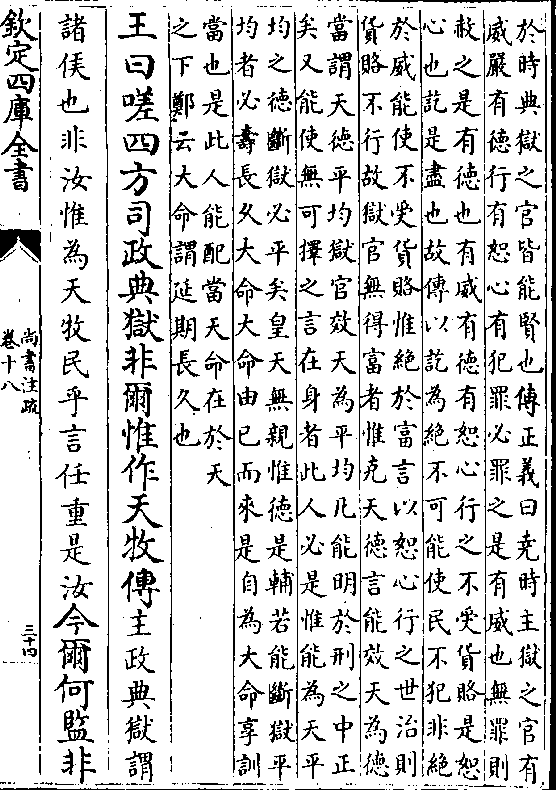 於時典獄之官皆能賢也傳正義曰堯時主獄之官有
威嚴有德行有恕心有犯罪必罪之是有威也無罪則
赦之是有德也有威有德有恕心行之不受貨賂是恕
心也訖是盡也故傳以訖為絕不可能使民不犯非絕
於威能使不受貨賂惟絕於富言以恕心行之世治則
貨賂不行故獄官無得富者惟克天德言能效天為德
當謂天德平均獄官效天為平均凡能明於刑之中正
矣又能使無可擇之言在身者此人必是惟能為天平
均之德斷獄必平矣皇天無親惟德是輔若能斷獄平
均者必壽長久大命大命由已而來是自為大命享訓
當也是此人能配當天命在於天
之下鄭云大命謂延期長久也
王曰嗟四方司政典獄非爾惟作天牧傳主政典獄謂
諸侯也非汝惟為天牧民乎言任重是汝今爾何監非
欽定四庫全書
尚書注疏
卷十八
三十四